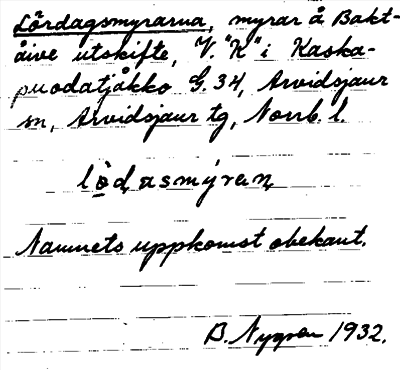 Lördagsmyrarna, myrar å Bakt-
åive utskifte, V. "K" i Kaska-
puodatjåkko G. 34, Arvidsjaur
sn, Arvidsjaur tg, Norrb. l.
lò̱ḍasmýraṇ
Namnets uppkomst obekant.
B. Nygren 1932.